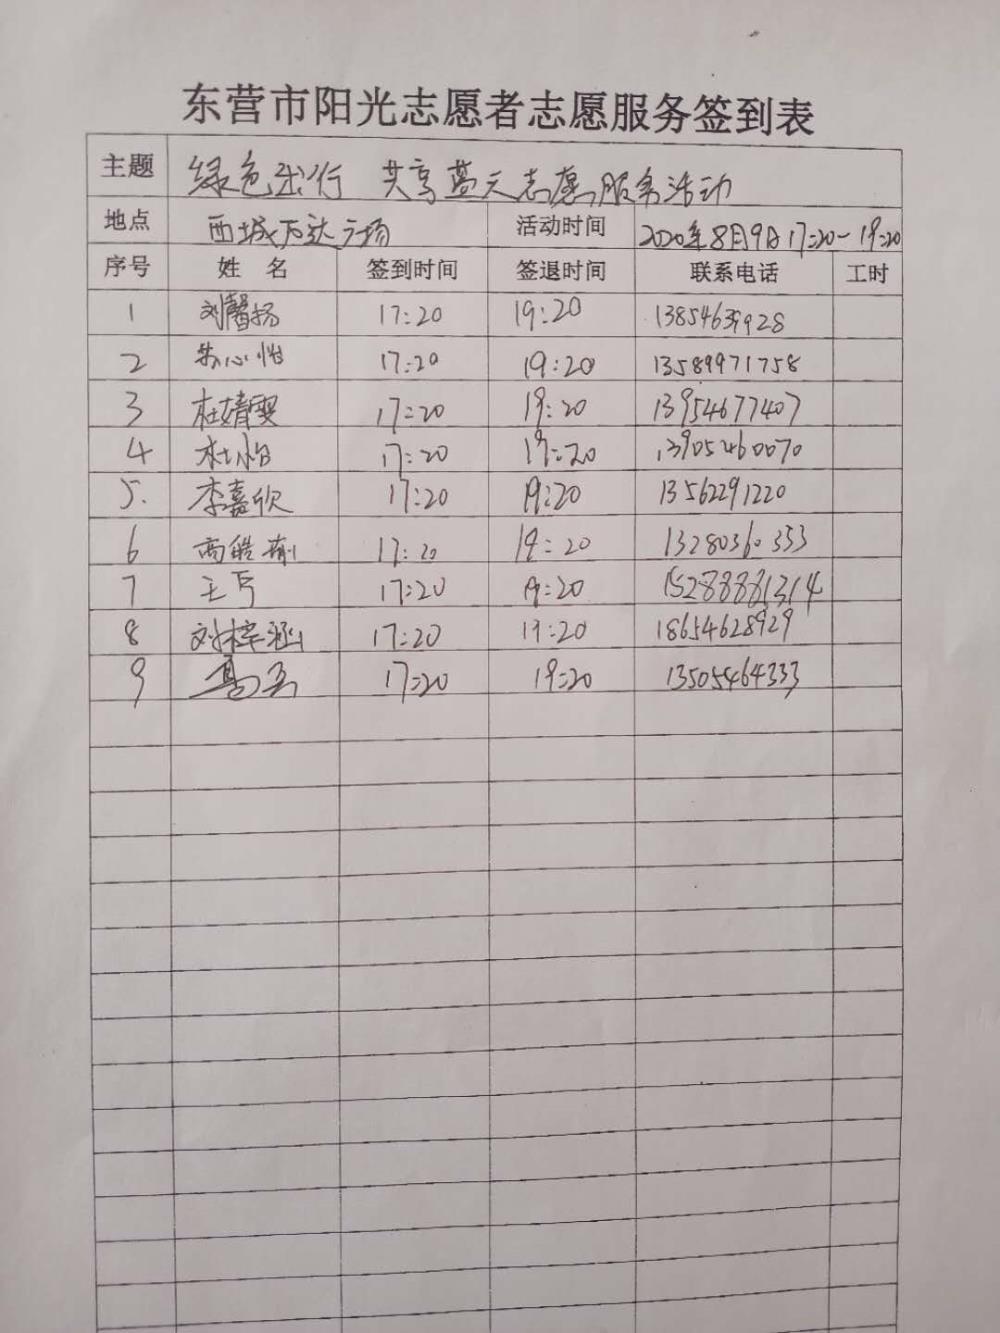 东营市阳光志愿者志愿服务签到表
主题 绿色出行 共享蓝天志愿服务活动
地点 西城万达广场 活动时间 2020年8月9日17:20-19:20
序号 姓名 签到时间 签退时间 联系电话 工时
1 刘馨扬 17:20 19:20 13854639928
2 苏心怡 17:20 19:20 13589971758
3 杜婧雯 17:20 19:20 13954677407
4 杜怡 17:20 19:20 13905460070
5. 李嘉欣 17:20 19:20 13562291220
6 高皓 17:20 19:20 13280360353
7 王 17:20 19:20 15288881314
8 刘梓涵 17:20 19:20 18654628929
9 17:20 19:20 13505464333